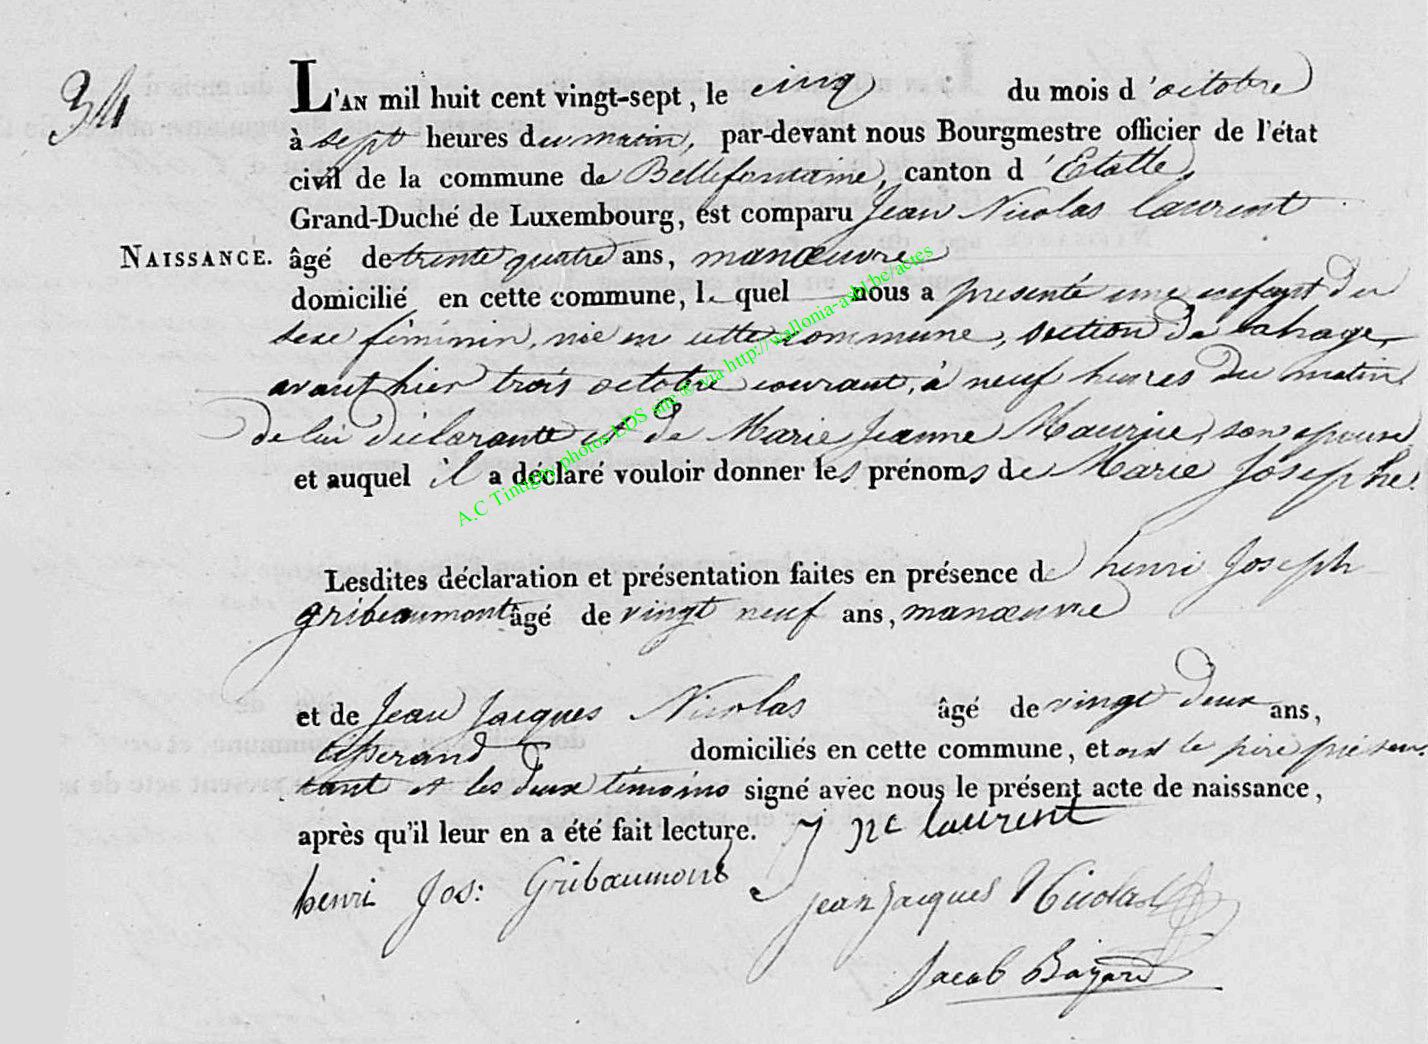 34
L'AN mil huit cent vingt-sept, le cinq du mois d'octobre
à sept heures du matin, par-devant nous Bourgmestre officier de l'état
civil de la commune de Bellefontaine, canton d'Etalle,
Grand-Duché de Luxembourg, est comparu Jean Nicolas laurent
NAISSANCE. âgé de trente quatre ans, manœuvre
domicilié en cette commune, lequel nous a presenté une enfant du
sexe féminin, née en cette commune, section de Lahage,
avant hier trois octobre courant, à neuf heures du matin
de lui déclarant et de Marie Jeanne Maurice, son épouse
et auquel il a déclaré vouloir donner les prénoms de Marie Josephe.
A.C Tintigny photos LDS site ® via http://wallonia-asbl.be/actes
Lesdites déclaration et présentation faites en présence de henri Joseph
gribeaumont âgé de vingt neuf ans, manœuvre
et de Jean Jacques Nicolas âgé de vingt deux ans,
tisserand domiciliés en cette commune, et ont le père présen-
tant et les deux témoins signé avec nous le présent acte de naissance,
après qu'il leur en a été fait lecture. J nc laurent
henri Jos: Gribaumont
jean jacques Nicolas
Jacob Bayard